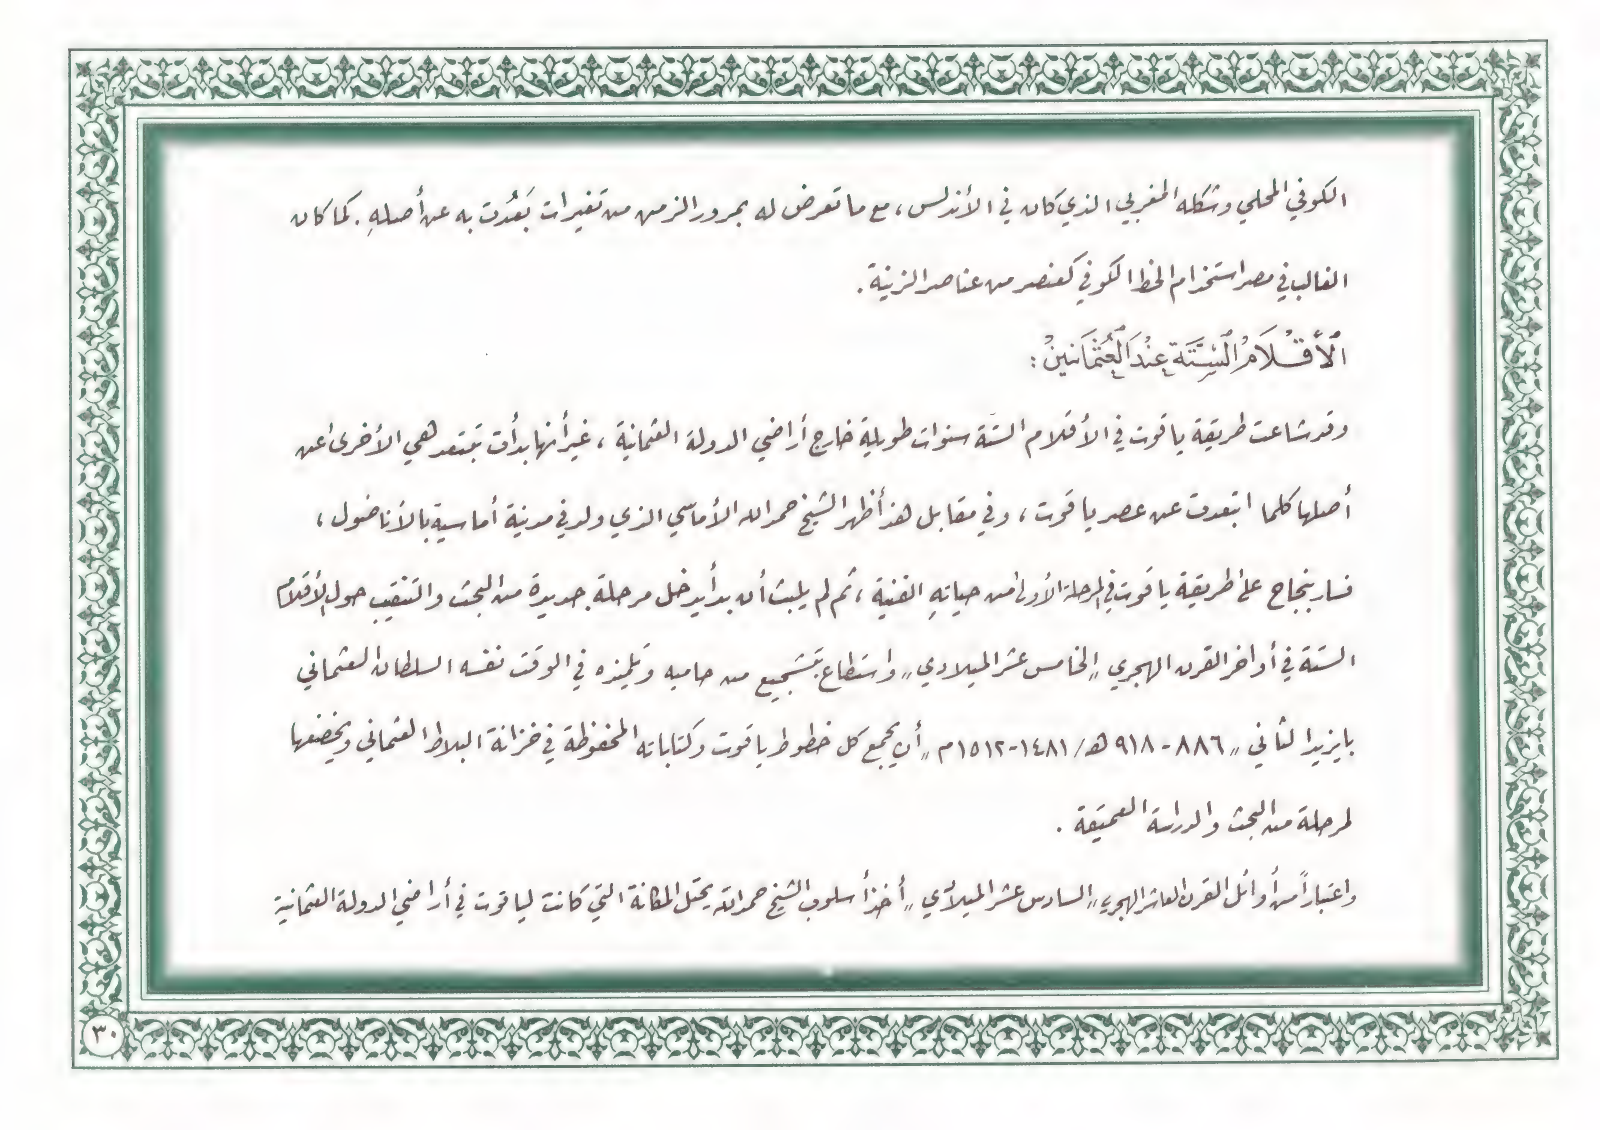 الكوفي المحلي وشكله المغربي الذي كان في الأندلس ، مع ما تعرض له بمرور الزمن من تغيرات بَعُدت به عن أصلهِ . كما كان
الغالب في مصر استخدام الخط الكوفي كعنصر من عناصر الزينة .
الأَقْلَامُ السِّتَّة عِنْدَ العُثْمَانيينْ :
وقد شاعت طريقة ياقوت في الأقلام الستة سنوات طويلة خارج أراضي الدولة العثمانية ، غير أنها بدأت تبتعد هي الأخرى عن
أصلها كلما ابتعدت عن عصر ياقوت ، وفي مقابل هذا ظهر الشيخ حمد الله الأماسي الذي ولد في مدينة أماسية بالأناضول ،
فسار بنجاح على طريقة ياقوت في المرحلة الأولى من حياتهِ الفنية ، ثم لم يلبث أن بدأ يدخل مرحلة جديدة من البحث والتنقيب حول الأقلام
الستة في أواخر القرن الهجري „ الخامس عشر الميلادي „ واستطاع بتشجيع من حاميه وتلميذه في الوقت نفسه السلطان العثماني
بايزيد الثاني „ ٨٨٦ - ٩١٨ هـ / ١٤٨١-١٥١٢م „ أن يجمع كل خطوط ياقوت وكتاباته المحفوظة في خزانة البلاط العثماني ويخضعها
لمرحلة من البحث والدراسة العميقة .
واعتباراً من أوائل القرن العاشر الهجري „ السادس عشر الميلادي „ أخذ أسلوب الشيخ حمد الله يحتل المكانة التي كانت لياقوت في أراضي الدولة العثمانية
٣٠